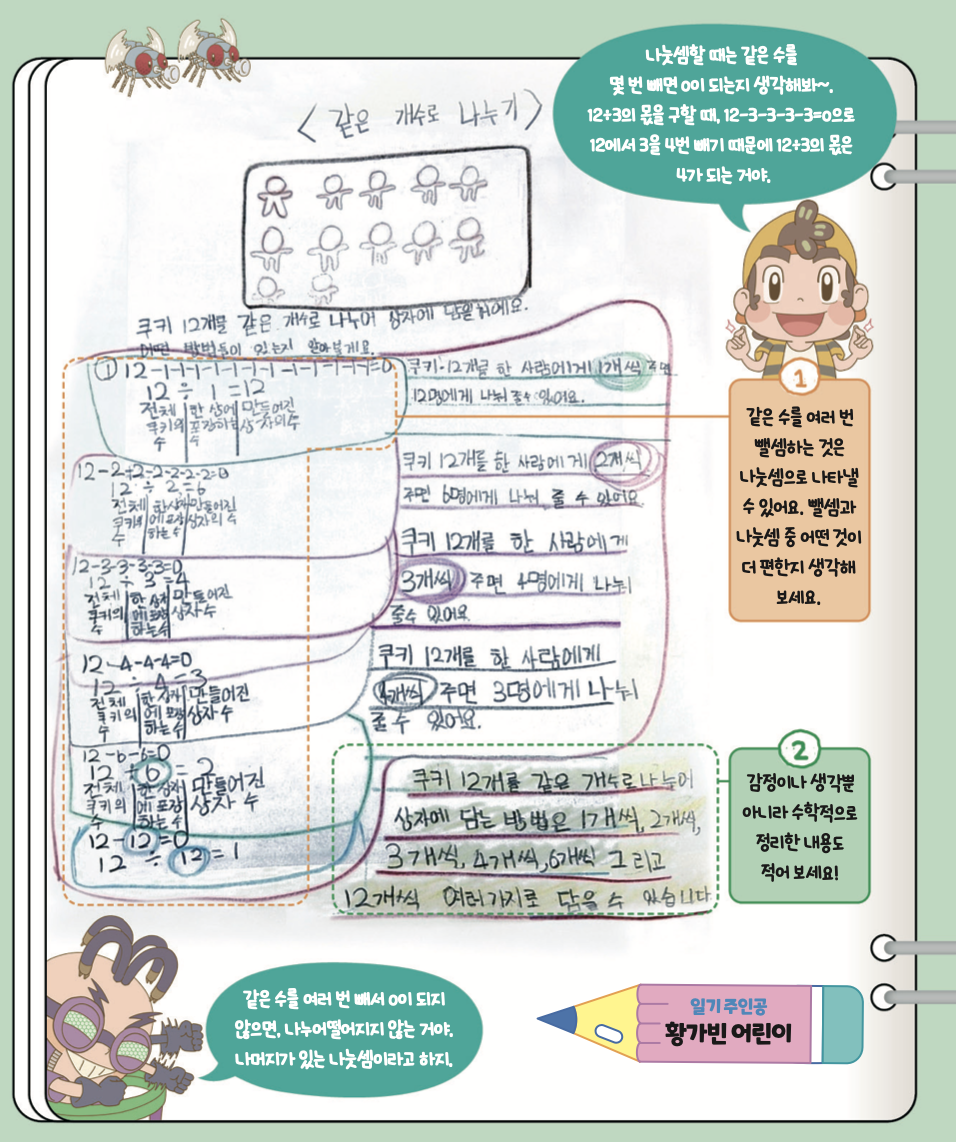 나눗셈할 때는 같은 수를
몇 번 빼면 0이 되는지 생각해봐~.
12÷3의 몫을 구할 때, 12-3-3-3-3=0으로
12에서 3을 4번 빼기 때문에 12÷3의 몫은
4가 되는 거야.
<같은 개수로 나누기>
쿠키 12개를 같은 개수로 나누어 상자에 담을 거에요.
어떤 방법들이 있는지 알아볼게요.
① 12-1-1-1-1-1-1-1-1-1-1-1-1=0
12÷1=12
전체 쿠키의 수
한 상에 포장하는 수
만들어진 상자의 수
쿠키 12개를 한 사람에게 1개씩 주면
12명에게 나눠 줄 수 있어요.
12-2-2-2-2-2-2=0
12÷2=6
전체 쿠키의 수
한 상자에 포장하는 수
만들어진 상자의 수
쿠키 12개를 한 사람에게 2개씩
주면 6명에게 나눠 줄 수 있어요
12-3-3-3-3=0
12÷3=4
전체 쿠키의 수
한 상자에 포장하는 수
만들어진 상자 수
쿠키 12개를 한 사람에게
3개씩 주면 4명에게 나눠
줄 수 있어요
12-4-4-4=0
12÷4=3
전체 쿠키의 수
한 상자에 포장하는 수
만들어진 상자 수
쿠키 12개를 한 사람에게
4개씩 주면 3명에게 나눠
줄 수 있어요.
12-6-6=0
12÷6=2
전체 쿠키의 수
한 상자에 포장하는 수
만들어진 상자 수
12-12=0
12÷12=1
쿠키 12개를 같은 개수로 나누어
상자에 담는 방법은 1개씩, 2개씩,
3개씩, 4개씩, 6개씩 그리고
12개씩 여러가지로 담을 수 있습니다
1
같은 수를 여러 번
뺄셈하는 것은
나눗셈으로 나타낼
수 있어요. 뺄셈과
나눗셈 중 어떤 것이
더 편한지 생각해
보세요.
2
감정이나 생각뿐
아니라 수학적으로
정리한 내용도
적어 보세요!
같은 수를 여러 번 빼서 0이 되지
않으면, 나누어떨어지지 않는 거야.
나머지가 있는 나눗셈이라고 하지.
일기 주인공
황가빈 어린이